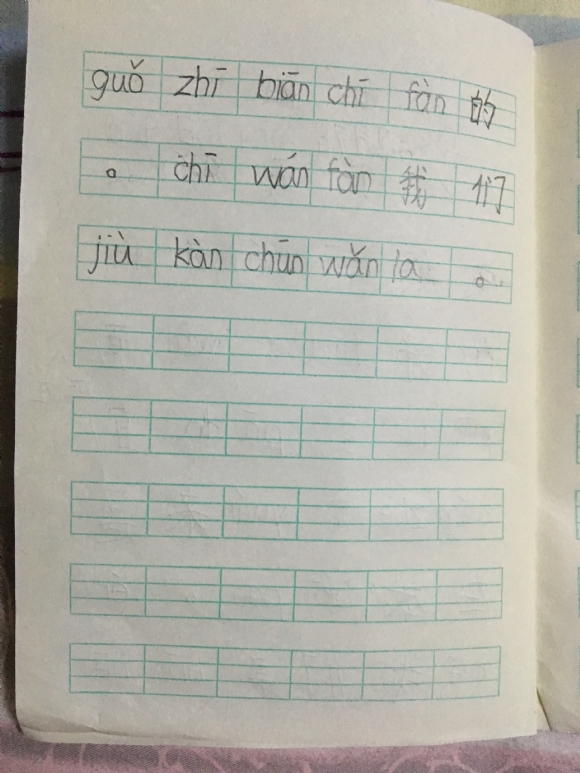 guǒ zhī biān chī fàn 的
。 chī wán fàn 我 们
jiù kàn chūn wǎn la 。